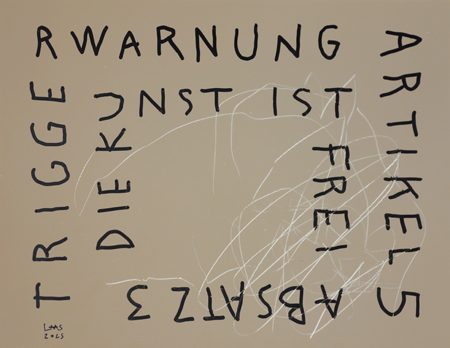 TRIGGE
RWARNUNG
ARTIKEL 5
ABSATZ 3
DIE K
UNST IST
FREI
2025